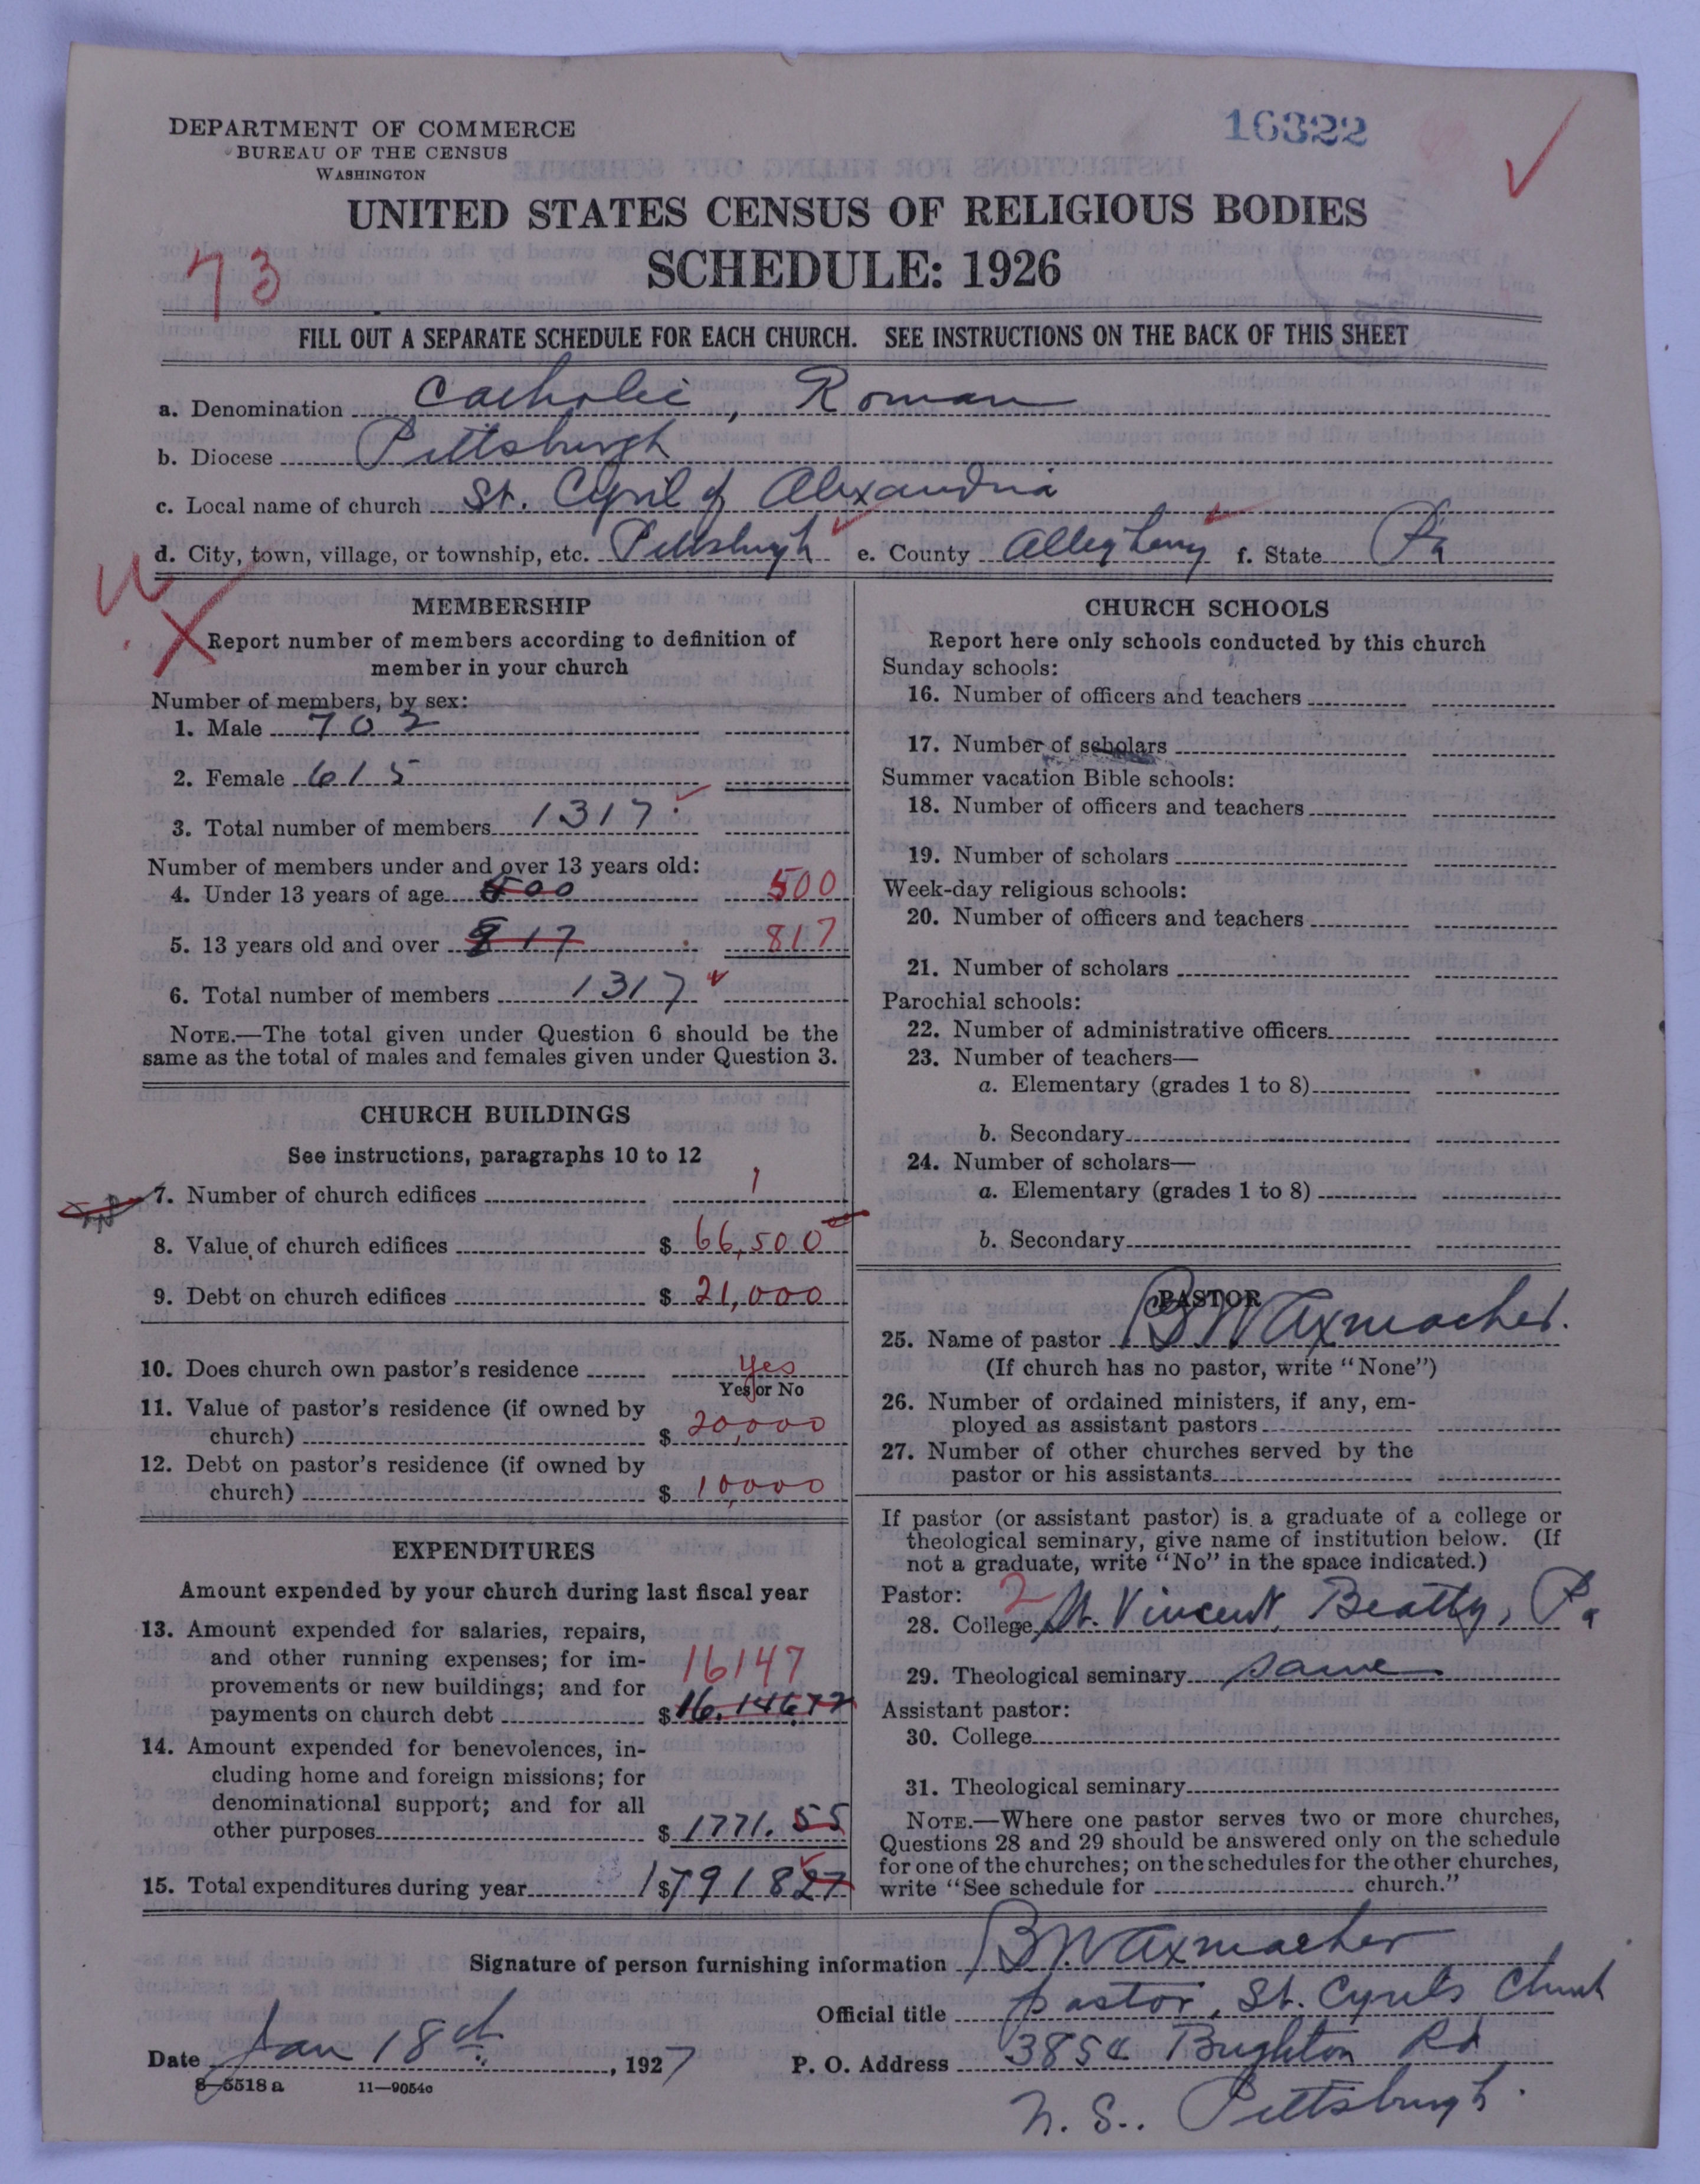 DEPARTMENT OF COMMERCE
BUREAU OF THE CENSUS
WASHINGTON
16322
UNITED STATES CENSUS OF RELIGIOUS BODIES
SCHEDULE: 1926
73
FILL OUT A SEPARATE SCHEDULE FOR EACH CHURCH. SEE INSTRUCTIONS ON THE BACK OF THIS SHEET
a. Denomination Catholic, Roman
b. Diocese Pittsburgh
c. Local name of church St. Cyril of Alexandria
d. City, town, village, or township, etc. Pittsburgh e. County Allegheny f. State Pa
MEMBERSHIP
Report number of members according to definition of
member in your church
Number of members, by sex:
1. Male 702
2. Female 615
3. Total number of members 1317
Number of members under and over 13 years old:
4. Under 13 years of age 500 500
5. 13 years old and over 817 817
6. Total number of members 1317
NOTE.—The total given under Question 6 should be the
same as the total of males and females given under Question 3.
CHURCH BUILDINGS
See instructions, paragraphs 10 to 12
7. Number of church edifices 1
8. Value of church edifices $ 66,500
9. Debt on church edifices $ 21,000
10. Does church own pastor's residence yes
Yes or No
11. Value of pastor's residence (if owned by
church) $ 20,000
12. Debt on pastor's residence (if owned by
church) $ 10,000
EXPENDITURES
Amount expended by your church during last fiscal year
13. Amount expended for salaries, repairs,
and other running expenses; for im-
provements or new buildings; and for 16147
payments on church debt $ 16,146.72
14. Amount expended for benevolences, in-
cluding home and foreign missions; for
denominational support; and for all
other purposes $ 1771.55
15. Total expenditures during year $ 1791827
CHURCH SCHOOLS
Report here only schools conducted by this church
Sunday schools:
16. Number of officers and teachers
17. Number of scholars
Summer vacation Bible schools:
18. Number of officers and teachers
19. Number of scholars
Week-day religious schools:
20. Number of officers and teachers
21. Number of scholars
Parochial schools:
22. Number of administrative officers
23. Number of teachers—
a. Elementary (grades 1 to 8)
b. Secondary
24. Number of scholars—
a. Elementary (grades 1 to 8)
b. Secondary
PASTOR
25. Name of pastor B W Axmacher.
(If church has no pastor, write "None")
26. Number of ordained ministers, if any, em-
ployed as assistant pastors
27. Number of other churches served by the
pastor or his assistants
If pastor (or assistant pastor) is a graduate of a college or
theological seminary, give name of institution below. (If
not a graduate, write "No" in the space indicated.)
Pastor: 2
28. College St. Vincent, Beatty, Pa
29. Theological seminary same
Assistant pastor:
30. College
31. Theological seminary
NOTE.—Where one pastor serves two or more churches,
Questions 28 and 29 should be answered only on the schedule
for one of the churches; on the schedules for the other churches,
write "See schedule for church."
Signature of person furnishing information B W Axmacher
Official title pastor, St. Cyrils Church
Date Jan 18th, 1927 P. O. Address 3854 Brighton Rd
8—5518 a 11—9054c
N. S.. Pittsburgh.